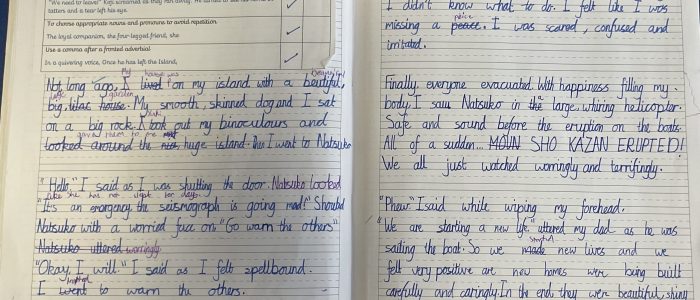 "We need to leave!" Koji screamed as they ran away.
tatters and a tear left his eye.
To choose appropriate nouns and pronouns to avoid repetition
The loyal companion, the four-legged friend, she
Use a comma after a fronted adverbial
In a quivering voice, Once he has left the Island,
My house was
Not long ago, I lived on my island with a beautiful,
big, lilac house. My smooth, skinned dog and I sat
garden
on a big rock. I took out my binoculours and
looked around the huge island. I went to Natsuko
"Hello," I said as I was shutting the door. Natsuko looked
like she has not slept for days.
"It's an emergency the seismograph is going mad!" Shouted
Natsuko with a worried face on. "Go warn the others"
Natsuko uttered worringly
"Okay, I will." I said as I felt spellbound.
I went to warn the others.
I didn't know what to do. I felt like I was
missing a peace. I was scared, confused and
irritated.
Finally, everyone evacuated. With happiness filling my
body, I saw Natsuko in the large, whiring helicopter.
Safe and sound before the eruption on the boats.
All of a sudden... MOUN SHO KAZAN ERUPTED!
We all just watched worringly and terrifingly.
"Phew." I said while wiping my forehead.
"We are starting a new life," uttered my dad as he was
sailing the boat. So we made new lives and we
felt very positive are new homes were being built
carefully and caringly. In the end, they were beautiful, shiny